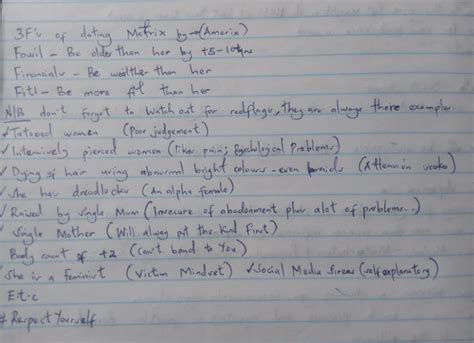 3F's of dating Matrix by → (Amerix)
Fossil - Be older than her by +5-10yrs
Financials - Be wealther than her
Fit! - Be more fit than her
N/B don't forget to watch out for redflags, they are always there examples
✓ Tatooed women (Poor judgement)
✓ Intensively pierced women (likes pain; Psychological Problems)
✓ Dying of hair using abnormal bright colours - even (Attention seeker)
✓ She has dreadlocks (An alpha female)
✓ Raised by single Mum (Insecure of abadonment plus alot of problems..)
✓ Single Mother (Will always put the kind First)
Body count of +2 (Can't bond to You)
✓ She is a feminist (Victim Mindset) ✓ Social Media (self explanatory)
E.t.c
# Respect Yourself